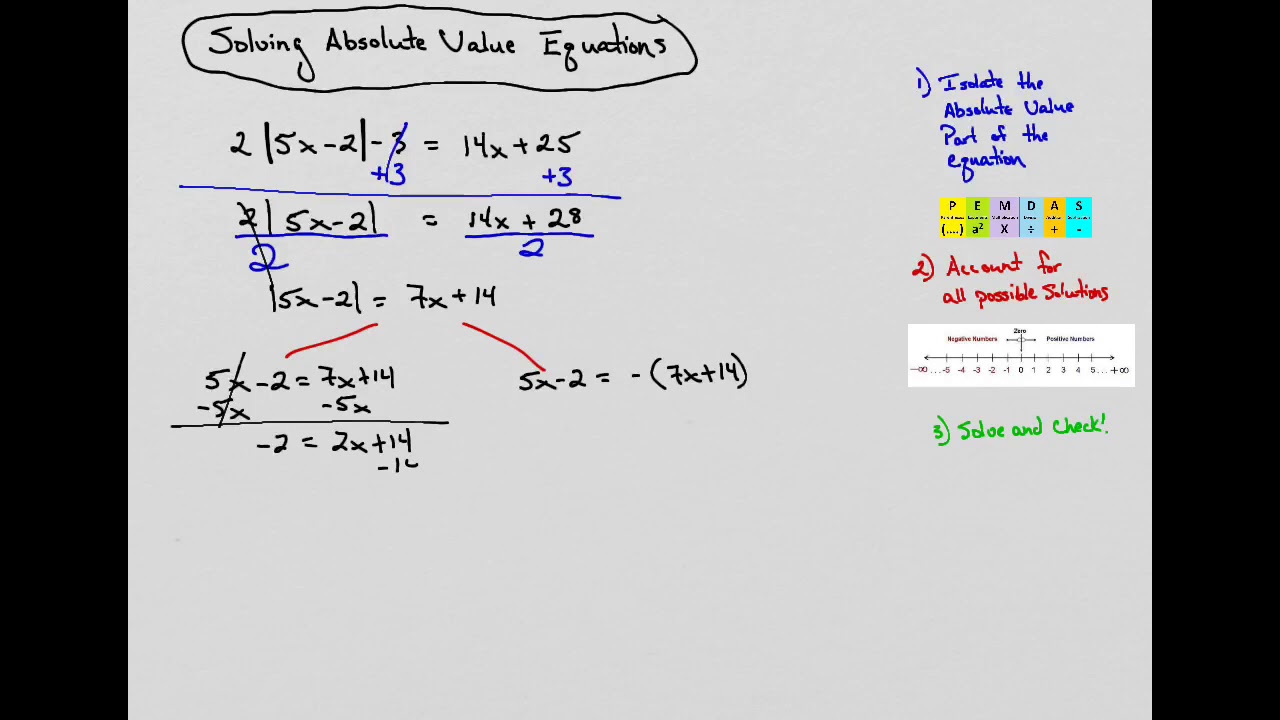 Solving Absolute Value Equations
2 |5x-2| - 3 = 14x + 25
+3 +3
2 | 5x-2| = 14x + 28
2 2
|5x-2| = 7x+14
5x-2 = 7x+14
-5x -5x
-2 = 2x+14
-14
5x-2 = -(7x+14)
1) Isolate the
Absolute Value
Part of the
equation
P E M D A S
(....) a² X ÷ + -
2) Account for
all possible Solutions
Zero
Negative Numbers Positive Numbers
-∞ ...-5 -4 -3 -2 -1 0 1 2 3 4 5...+∞
3) Solve and Check!